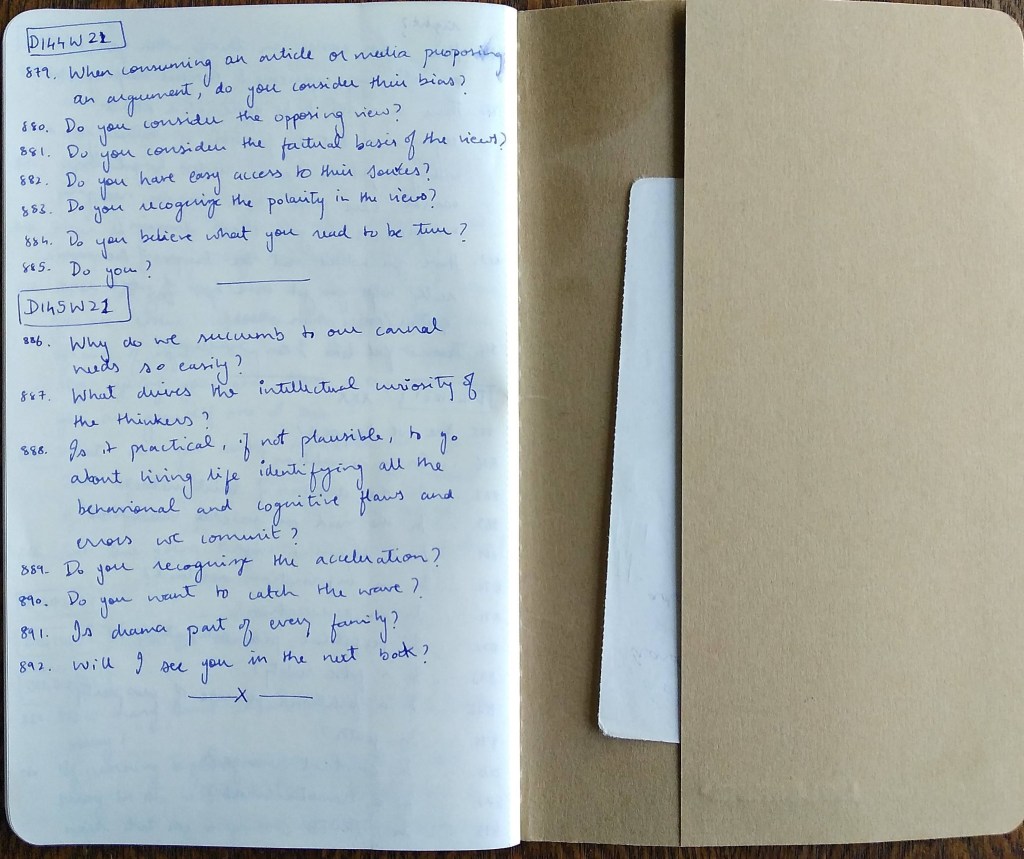 D144W21
879. When consuming an article or media proposing
an argument, do you consider their bias?
880. Do you consider the opposing view?
881. Do you consider the factual basis of the views?
882. Do you have easy access to their sources?
883. Do you recognize the polarity in the views?
884. Do you believe what you read to be true?
885. Do you?
D145W21
886. Why do we succumb to our carnal
needs so easily?
887. What drives the intellectual curiosity of
the thinkers?
888. Is it practical, if not plausible, to go
about living life identifying all the
behavioral and cognitive flaws and
errors we commit?
889. Do you recognize the acceleration?
890. Do you want to catch the wave?
891. Is drama part of every family?
892. Will I see you in the next book?
x